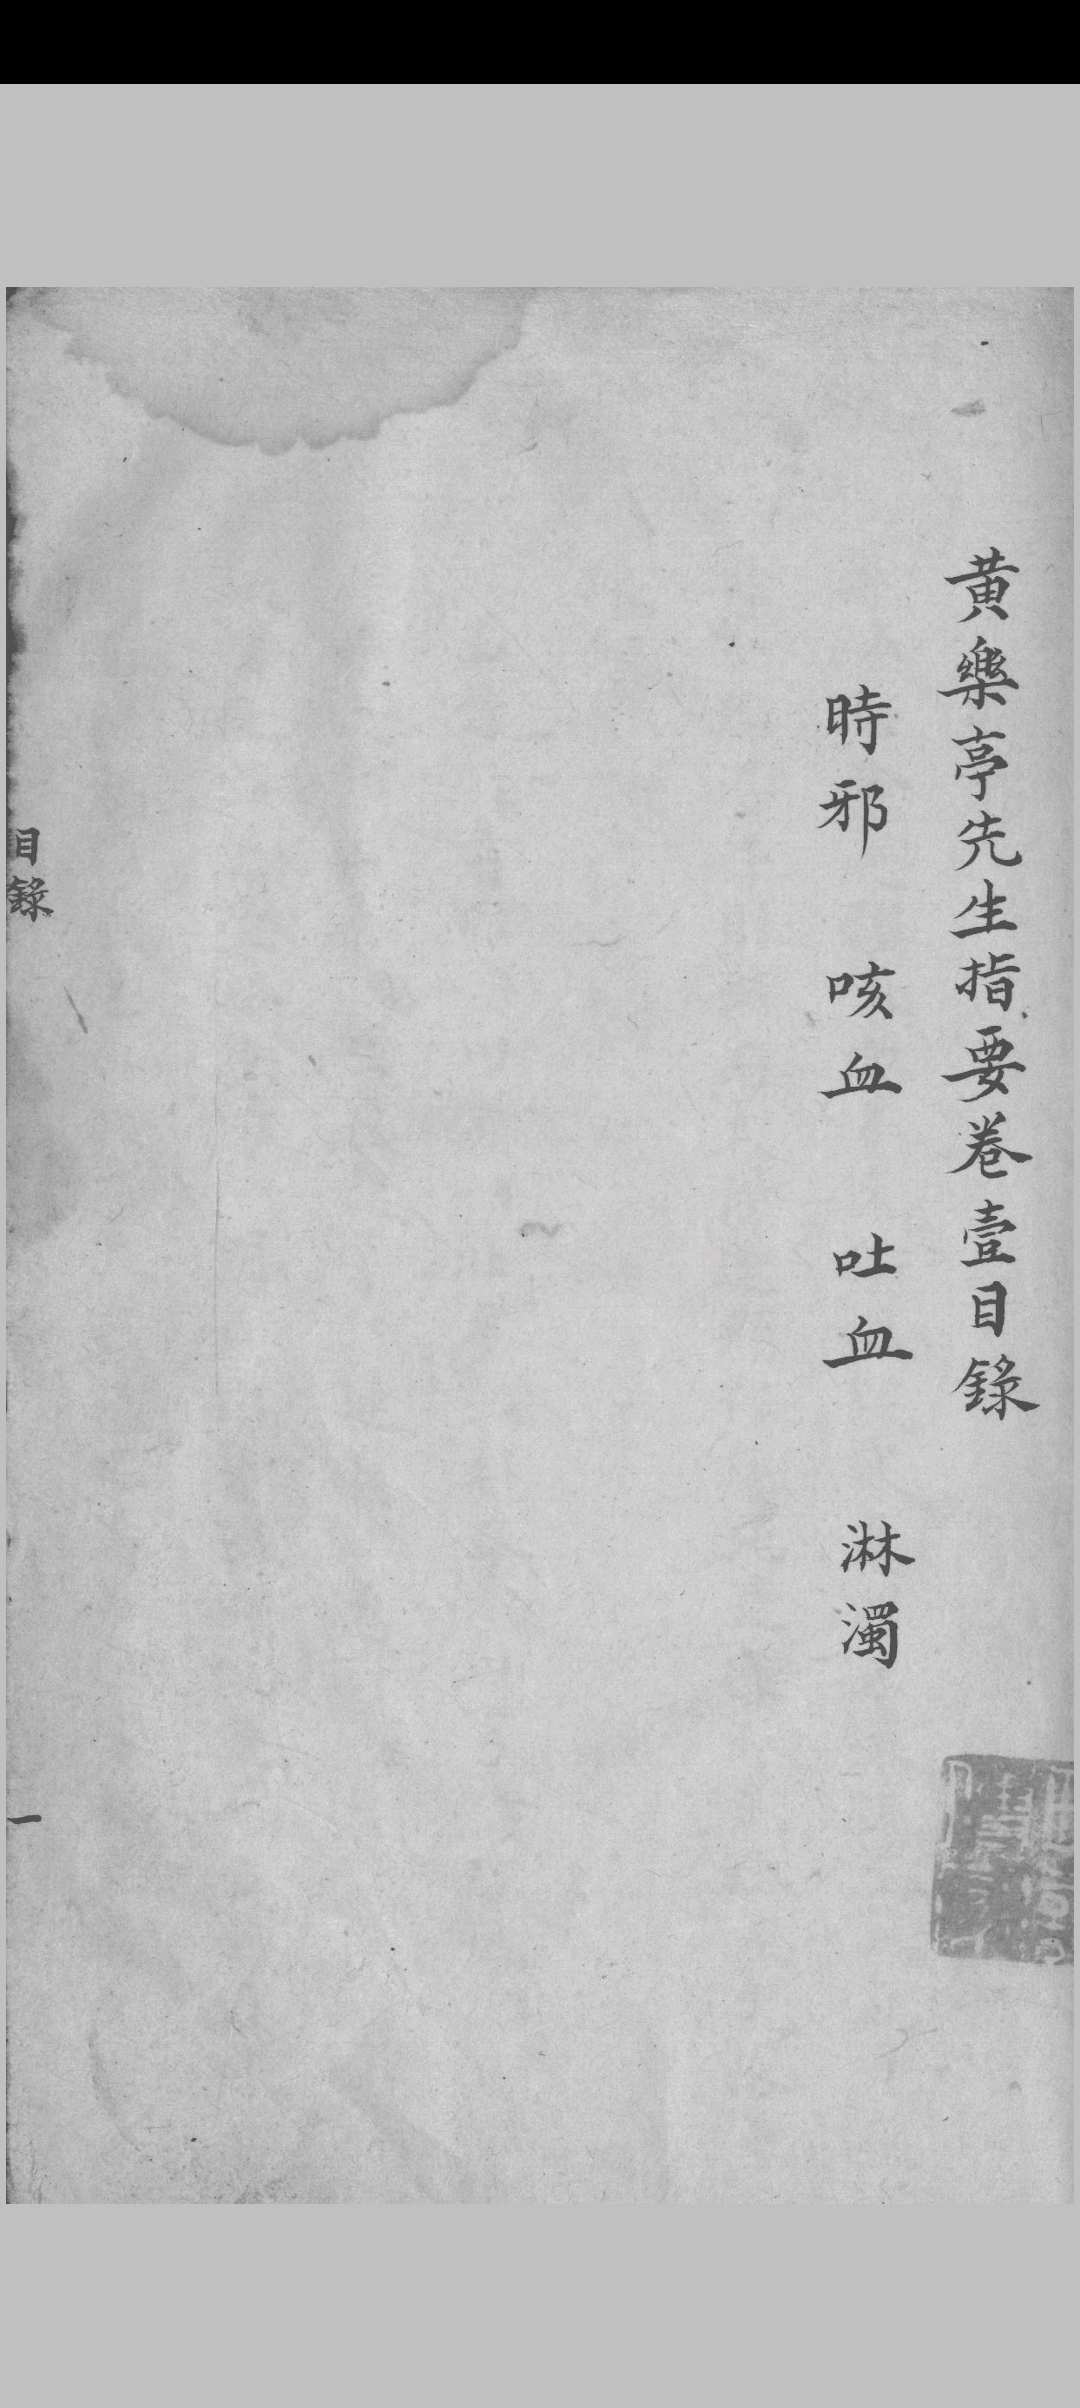 黄樂亭先生指要卷壹目錄
時邪 咳血 吐血 淋濁
目錄
一